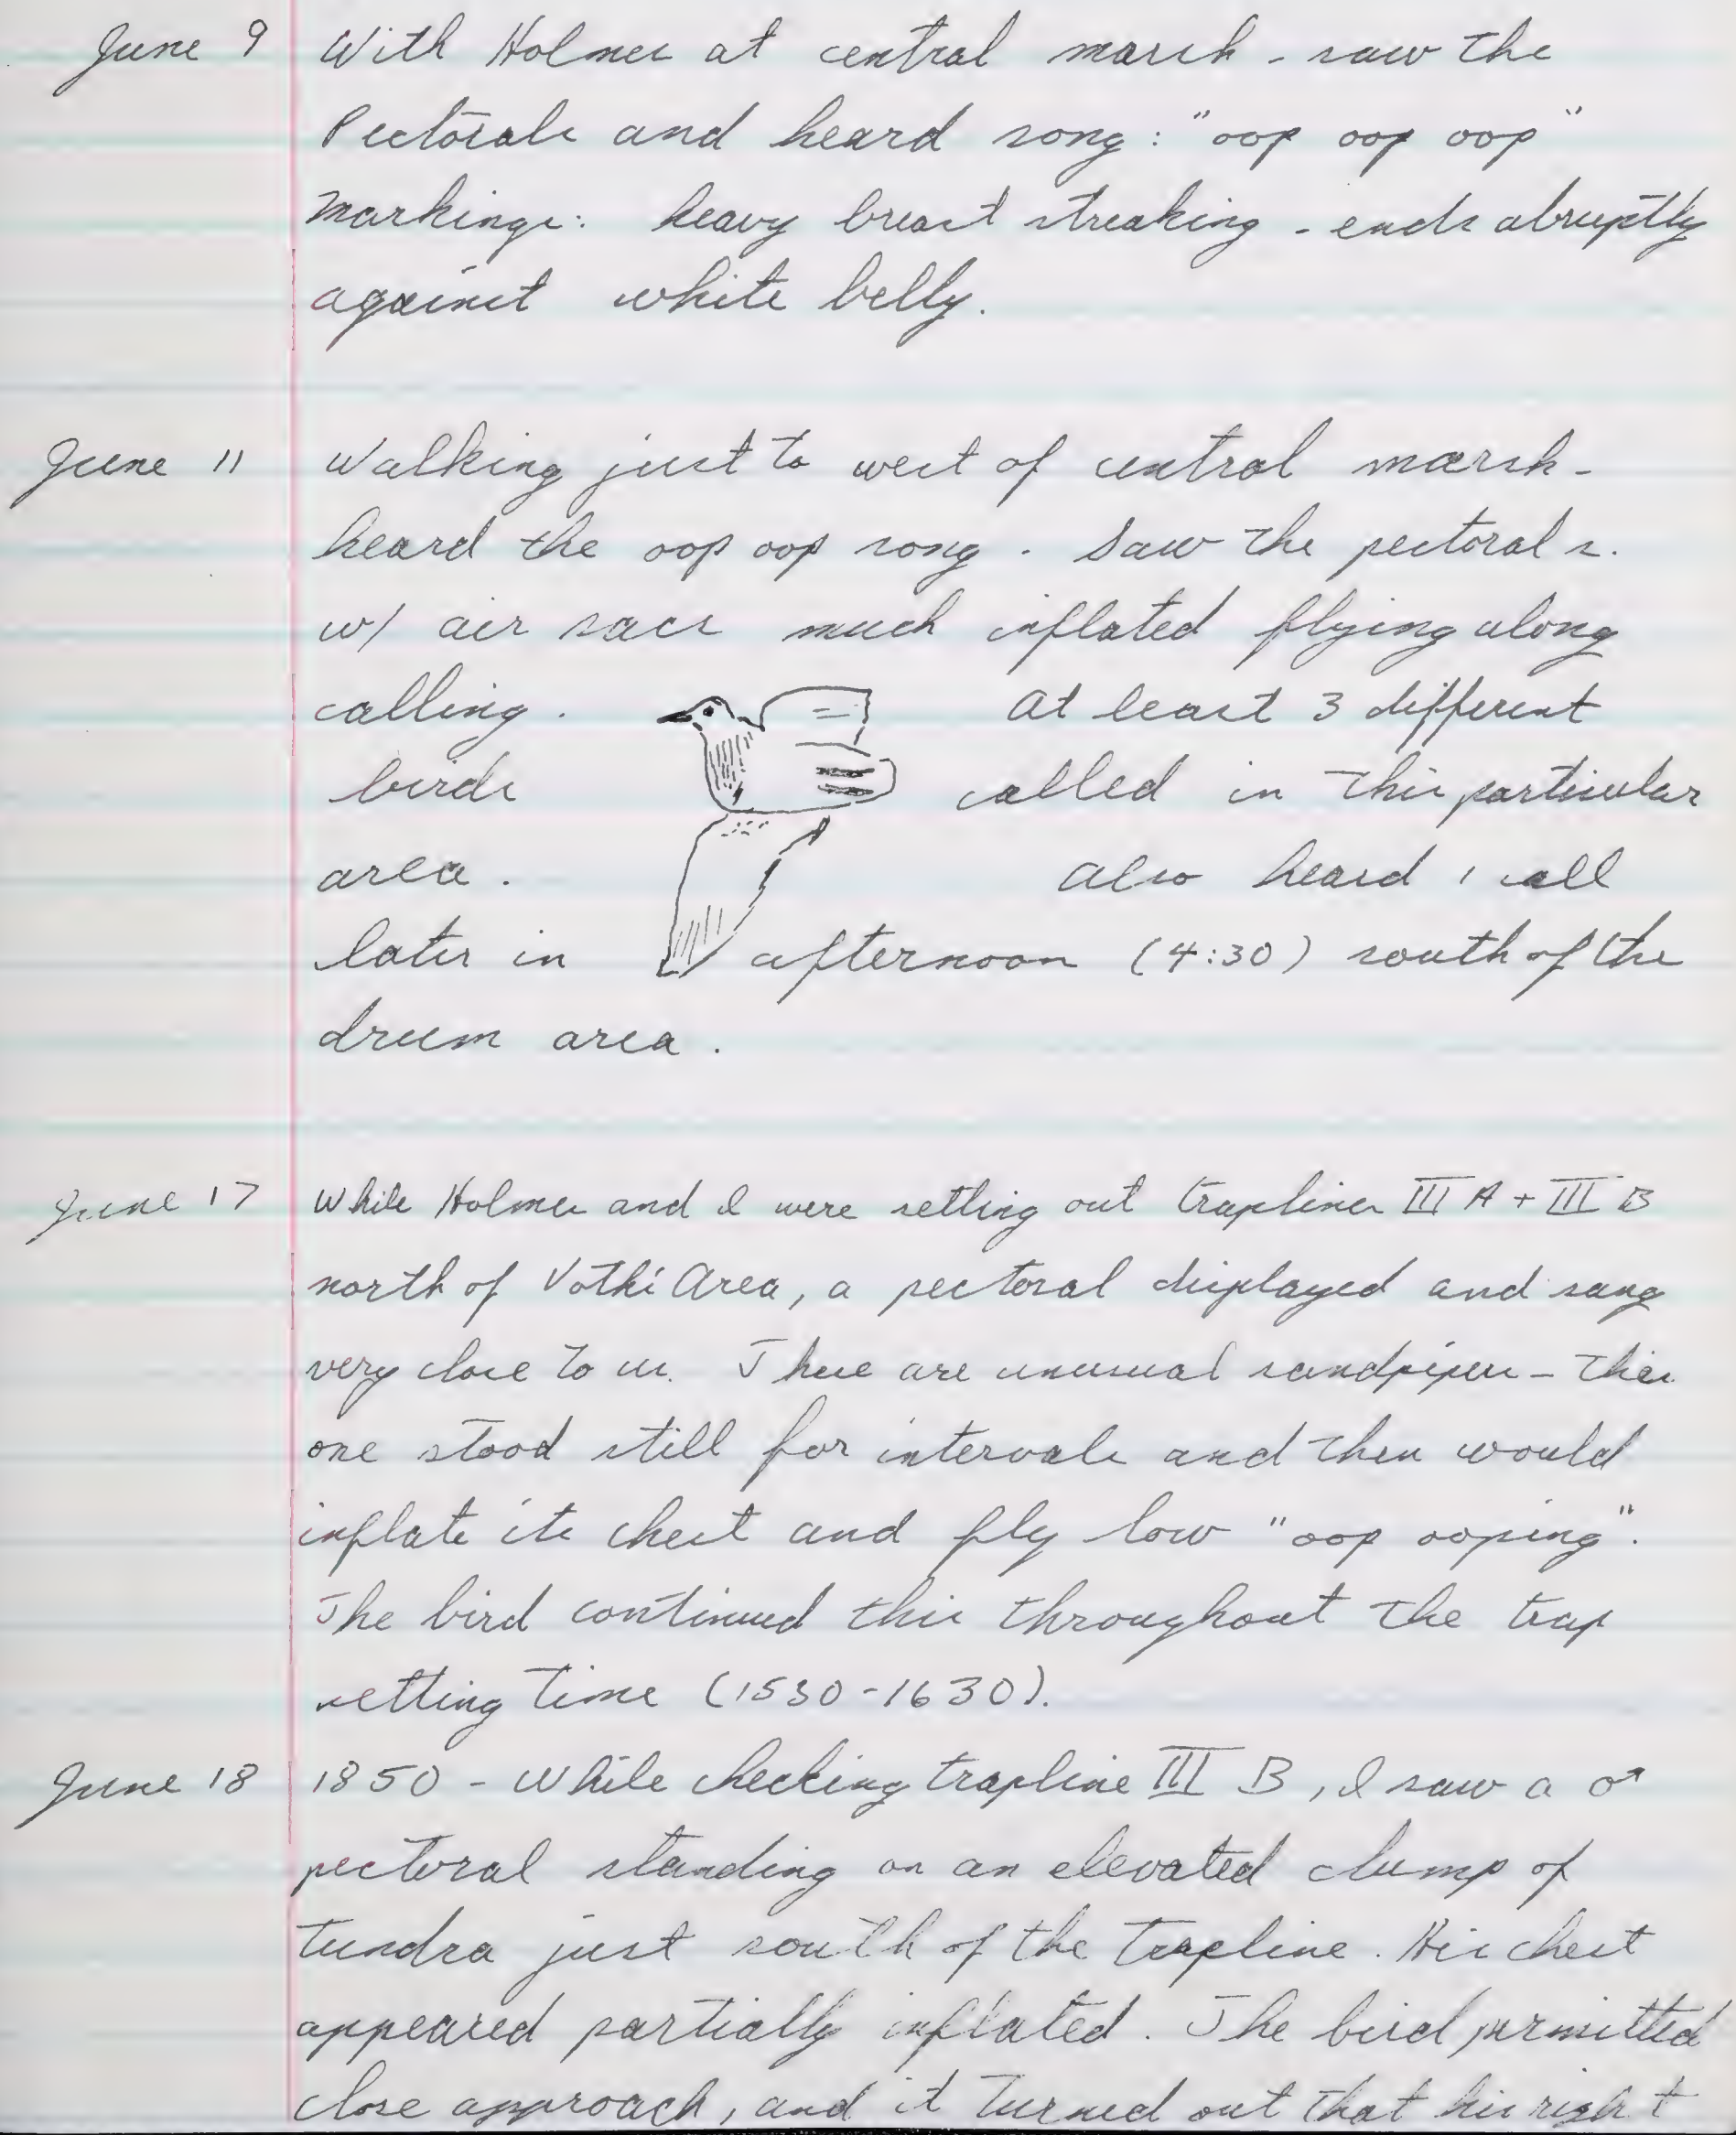 June 9 With Holmes at central marsh - saw the
Pectorals and heard song : "oop oop oop"
Markings: heavy breast streaking - ends abruptly
against white belly.
June 11 Walking just to west of central marsh -
heard the oop oop song. Saw the pectoral s.
w/ air sacs much inflated flying along
calling. At least 3 different
birds called in this particular
area. Also heard 1 call
later in afternoon (4:30) south of the
drum area.
June 17 While Holmes and I were setting out traplines III A + III B
north of Area, a pectoral displayed and sang
very close to us. These are unusual sandpipers - this
one stood still for intervals and then would
inflate its chest and fly low "oop ooping".
The bird continued this throughout the trap
setting time (1530-1630).
June 18 1850 - While checking trapline III B, I saw a ♂
pectoral standing on an elevated clump of
tundra just south of the trapline. His chest
appeared partially inflated. The bird permitted
close approach, and it turned out that his right